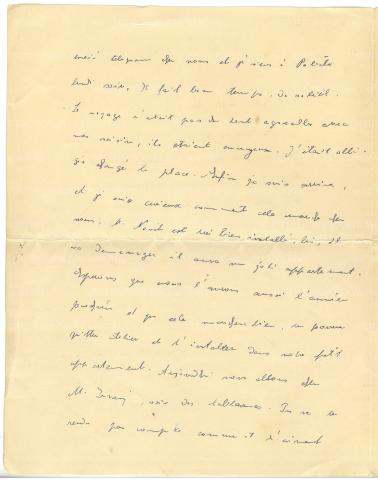 chez nous et je viens à
lundi soir, Il fait beau temps, du soleil.
Le voyage n'était pas du tout agréable avec
mes voisins, ils étaient ennuyeux. J'étais obli-
gé changé la place. Enfin je suis arrivé,
et je suis curieux comment cela marche chez
nous. M. est très bien installé, ici, Il
va déménager il aura un joli appartement.
Espérons que nous l'aurons aussi l'année
prochain et que cela marchera bien, on pourra
quitter atelier et s'installer dans notre petit
appartement. Aujourd'hui nous allons chez
M. voir des tableaux. Tu ne te
rends pas compte comme il